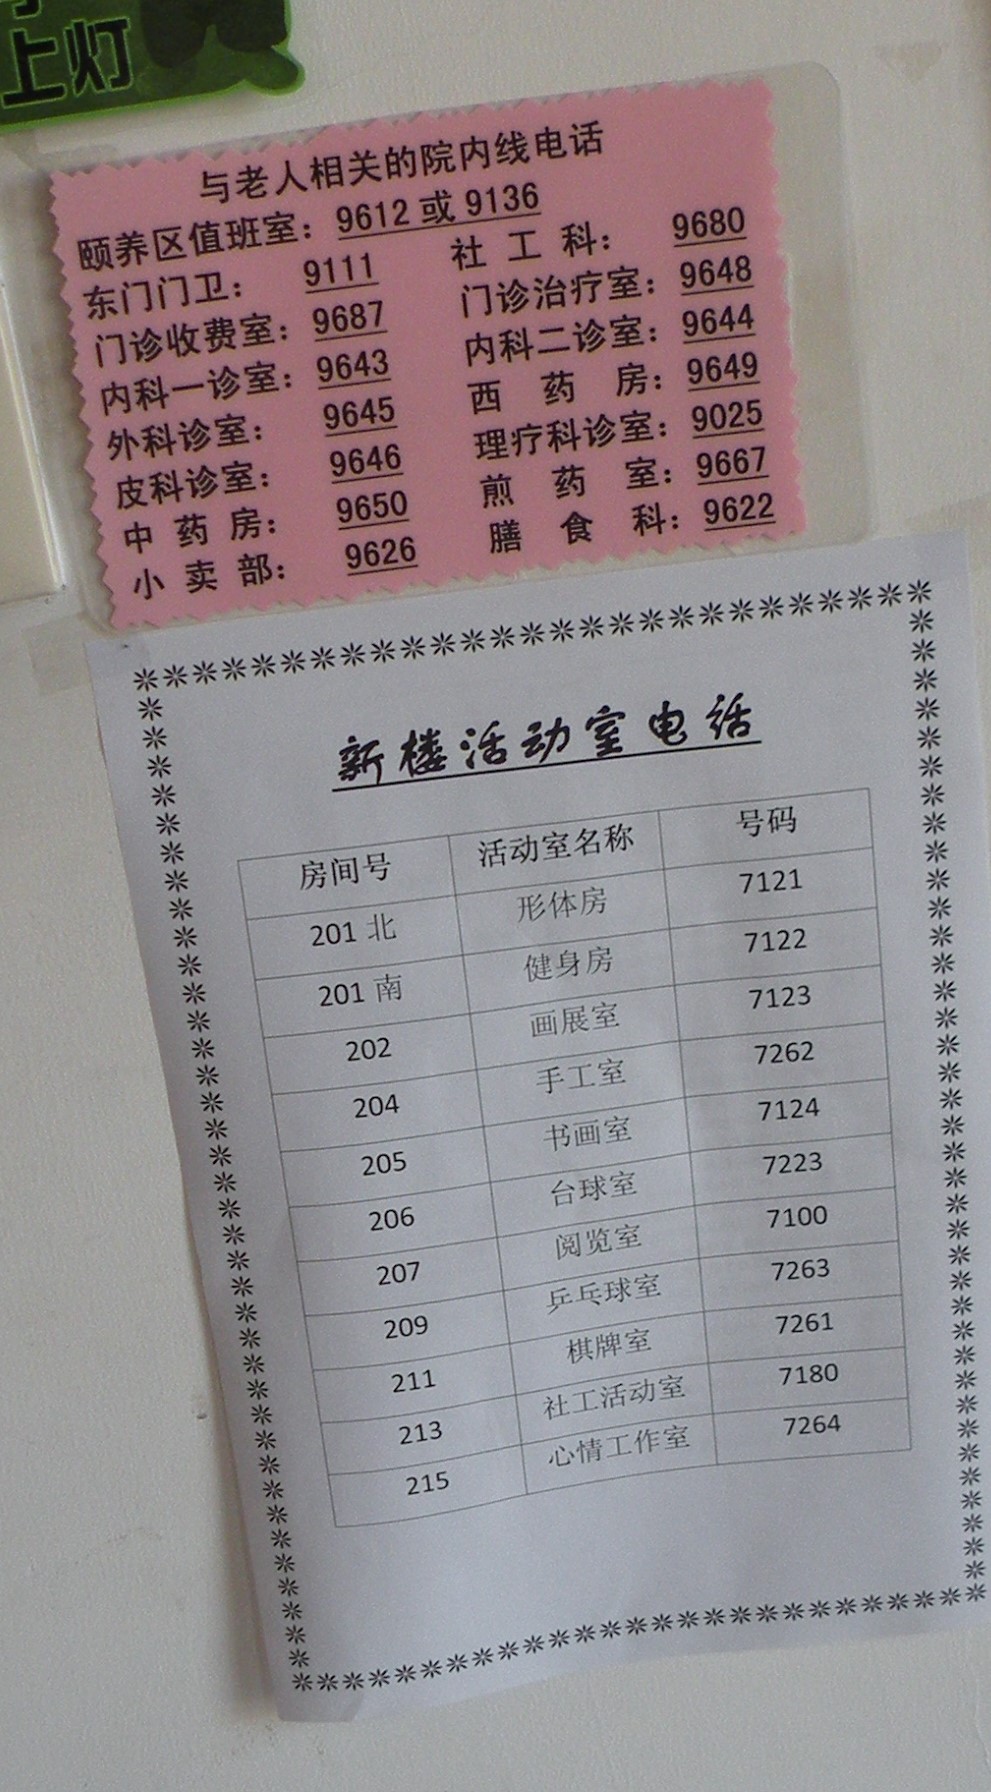 上灯
与老人相关的院内线电话
颐养区值班室：9612 或 9136
东门门卫： 9111 社 工 科： 9680
门诊收费室：9687 门诊治疗室：9648
内科一诊室：9643 内科二诊室：9644
外科诊室： 9645 西 药 房：9649
皮科诊室： 9646 理疗科诊室：9025
中 药 房： 9650 煎 药 室：9667
小 卖 部： 9626 膳 食 科：9622
新楼活动室电话
房间号 活动室名称 号码
201 北 形体房 7121
201 南 健身房 7122
202 画展室 7123
204 手工室 7262
205 书画室 7124
206 台球室 7223
207 阅览室 7100
209 乒乓球室 7263
211 棋牌室 7261
213 社工活动室 7180
215 心情工作室 7264